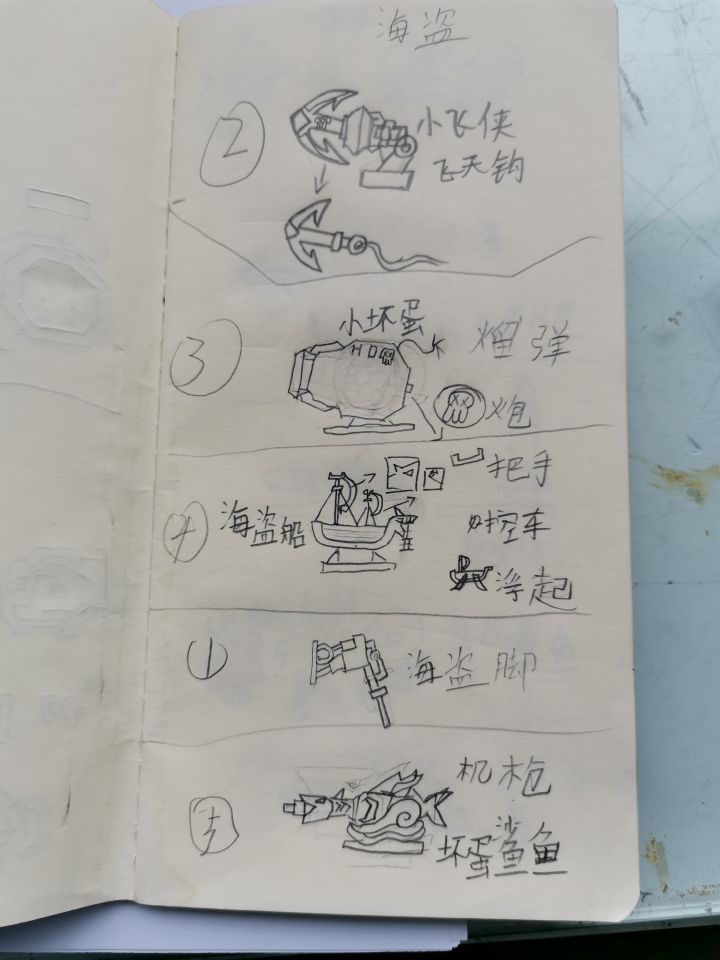 海盗
② 小飞侠
飞天钩
③ 小坏蛋
榴弹
炮
海盗船
把手
控车
浮起
① 海盗脚
机枪
坏蛋鲨鱼